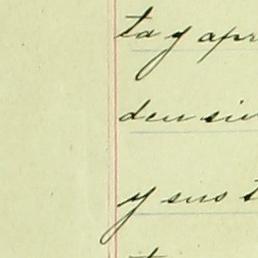 ta y apr
den sin
y sus t